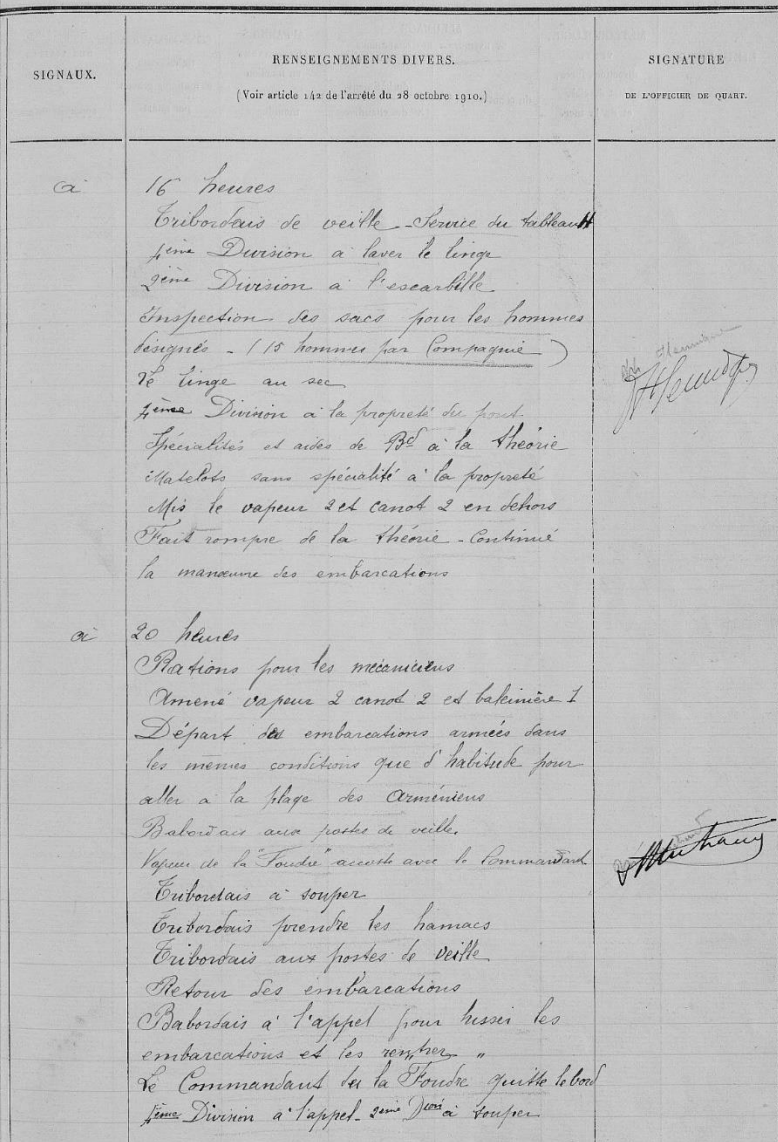 SIGNAUX.
RENSEIGNEMENTS DIVERS.
(Voir article 142 de l'arrêté du 28 octobre 1910.)
SIGNATURE
DE L'OFFICIER DE QUART.
à 16 heures
Tribordais de veille - Service du tableau
1ème Division à laver le linge
2ème Division à l'escarbille
Inspection des sacs pour les hommes
désignés - (15 hommes par Compagnie)
le linge au sec
1ème Division à la propreté du pont
Spécialités et aides de Bd à la théorie
Matelots sans spécialité à la propreté
Mis le vapeur 2 et canot 2 en dehors
Fait rompre de la théorie - Continué
la manœuvre des embarcations
à 20 heures
Rations pour les mécaniciens
Amené vapeur 2 canot 2 et baleinière 1
Départ des embarcations armées dans
les mêmes conditions que d'habitude pour
aller à la plage des Arméniens
Babordais aux postes de veille.
Vapeur de la "Foudre" accoste avec le Commandant
Tribordais à souper
Tribordais prendre les hamacs
Tribordais aux postes de veille
Retour des embarcations
Babordais à l'appel pour hisser les
embarcations et les rentrer "
Le Commandant de la Foudre quitte le bord
1ème Division à l'appel - 2ème Dion à souper